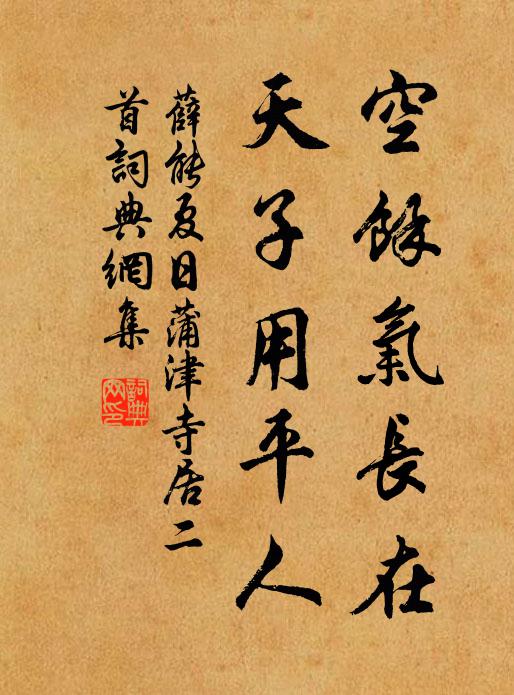 空餘氣長在
天子用平人
薛能夏日蒲津寺居二
首詞典網集
詞典網印